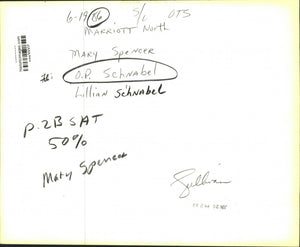 6-19 86 S/L OTS
MARRIOTT NORTH
MARY SPENCER
O.P. SCHNABEL
LILLIAN SCHNABEL
P-2B SAT
50%
Mary Spencer
Sullivan